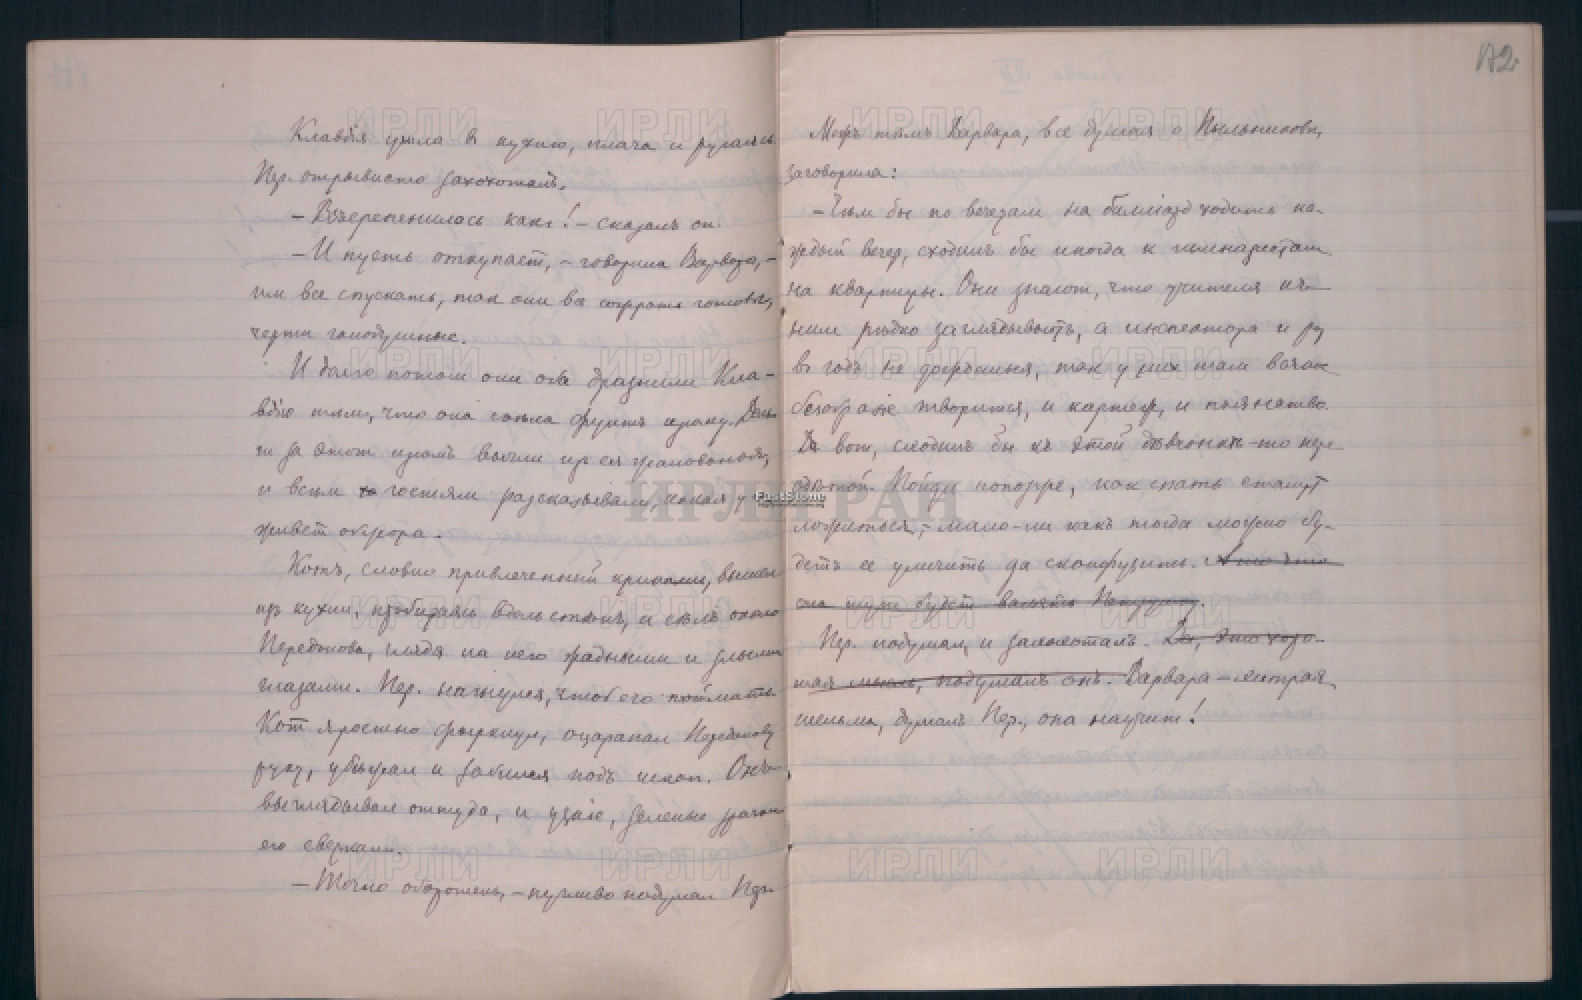 Клавдія ушла въ кухню, плача и ругаясь.
Пер. отрывисто захохоталъ.
— Взъерепенилась какъ! — сказалъ он.
— И пусть отлупаетъ, — говорила Варвара, —
им все спускать, так они все сожрать готовы,
черти голодушные.
И долго потом они оба дразнили Кла-
вдію тѣмъ, что она съѣла фунтъ изюму. День-
ги за этот изюмъ вычли изъ ея
и всем гостям разсказывали, какая у
живет обжора.
Котъ, словно привлеченный криками, вышел
изъ кухни, пробираясь вдоль стѣнъ, и сѣлъ около
Передонова, глядя на него жадными и злыми
глазами. Пер. нагнулся, чтоб его поймать.
Кот яростно фыркнул, оцарапал Передонову
руку, убѣжал и забился подъ шкап. Онъ
выглядывал оттуда, и узкіе, зеленые зрачки
его сверкали.
— Точно оборотень, — пугливо подумал Пер.
172
Межъ тѣмъ Варвара, все думая о Пыльниковѣ,
заговорила:
— Чѣм бы по вечерам на билліард ходить ка-
ждый вечер, сходилъ бы иногда к гимназистам
на квартиры. Они знают, что учителя къ
ним рѣдко заглядываютъ, а инспектора и раз
въ годъ не дождешься, так у них там всякое
безобразіе творится, и картеж, и пьянство.
Да вот, сходилъ бы къ этой дѣвчонкѣ-то пере-
одѣтой. Пойди попозже, как спать станут
ложиться, — мало ли какъ тогда можно бу-
детъ ее уличить да сконфузить. А то что
она
Пер. подумал, и захохоталъ. Да, это хоро-
шая мысль, подумалъ онъ. Варвара — хитрая
шельма, думалъ Пер., она научит!
ИРЛИ РАН
FastStone